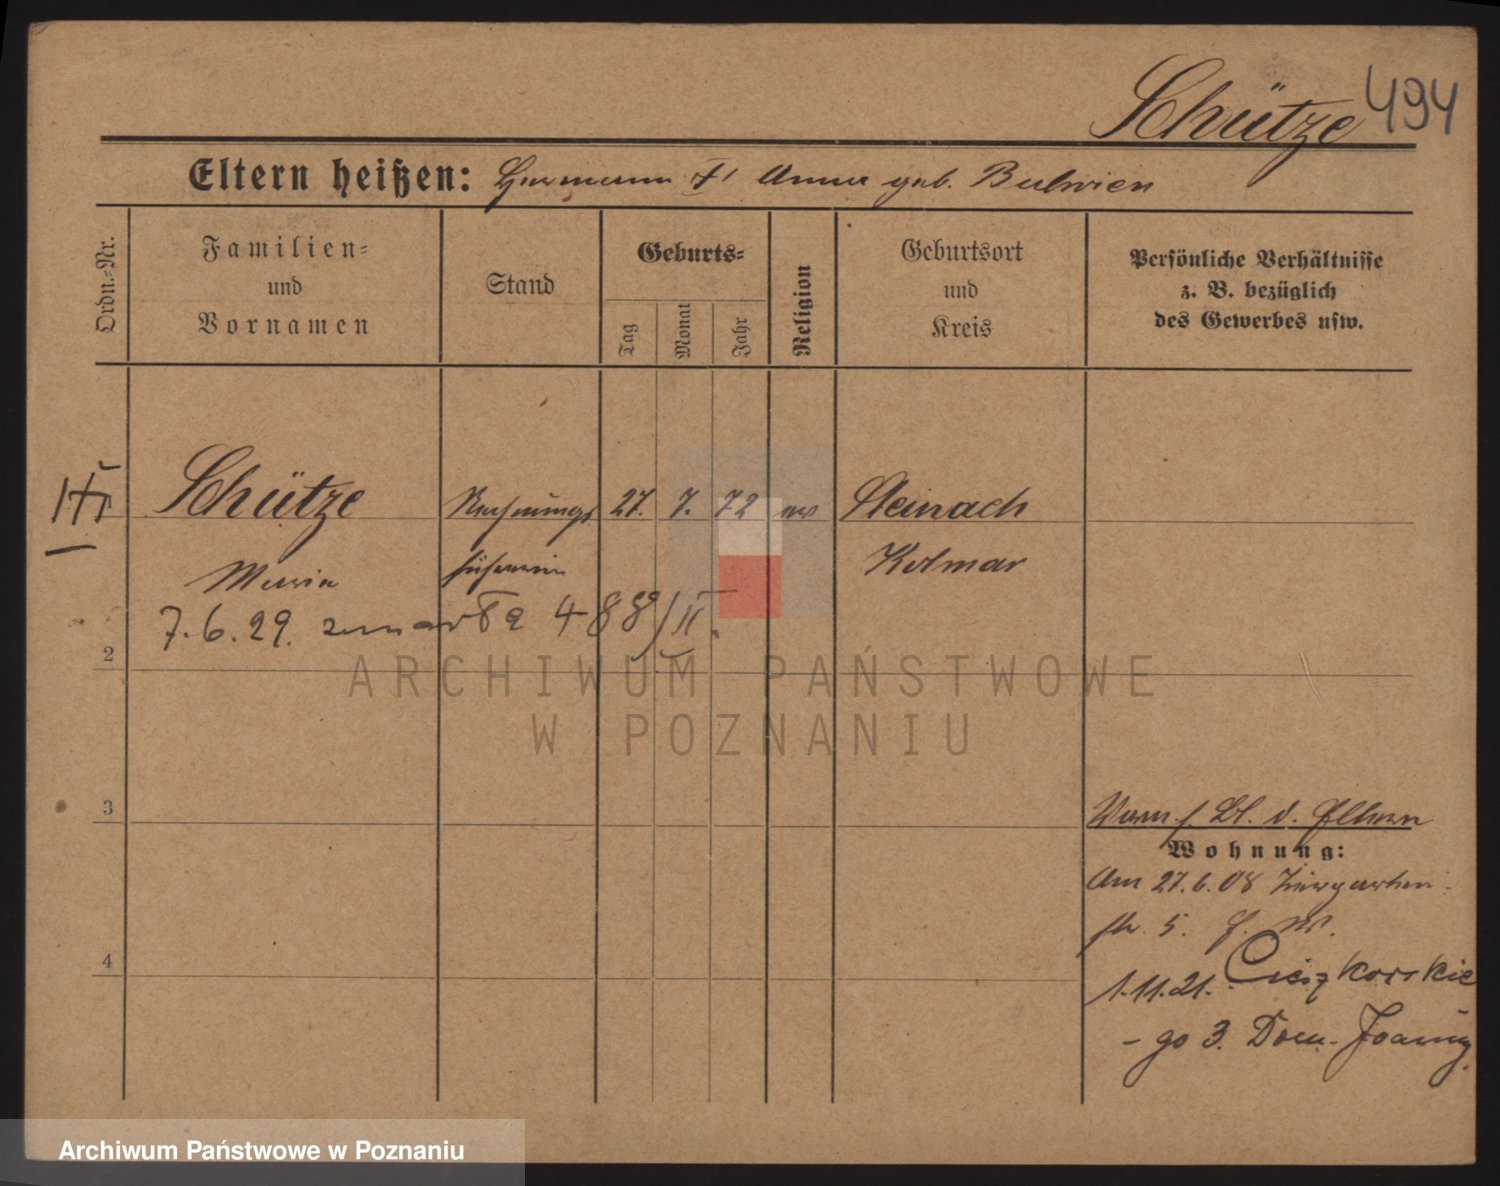 Schütze 494
Eltern heißen: Hermann u. Anna geb. Bulwien
Ordn.-Nr.
Familien-
und
Vornamen
Stand
Geburts-
Tag
Monat
Jahr
Religion
Geburtsort
und
Kreis
Persönliche Verhältnisse
z. B. bezüglich
des Gewerbes usw.
Schütze Rechnungs 27. 7. 72 ev Steinach
Maria führerin Kolmar
7. 6. 29. zmarła 488/II.
2
3
4
Vorm. s. Bl. d. Eltern
Wohnung:
Am 27. 6. 08 Tiergarten-
str. 5.
1.11.21. Cieszkowskie
- go 3. Dom.
ARCHIWUM PAŃSTWOWE
W POZNANIU
Archiwum Państwowe w Poznaniu